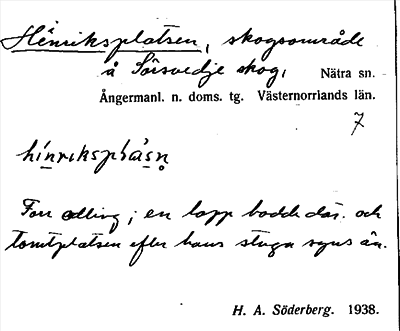 Hénriksplatsen, skogsområde
å Sörsvedje skog, Nätra sn.
Ångermanl. n. doms. tg. Västernorrlands län.
7
Forr odling; en lapp bodde där och
tomtplatsen efter hans stuga syns än.
H. A. Söderberg. 1938.